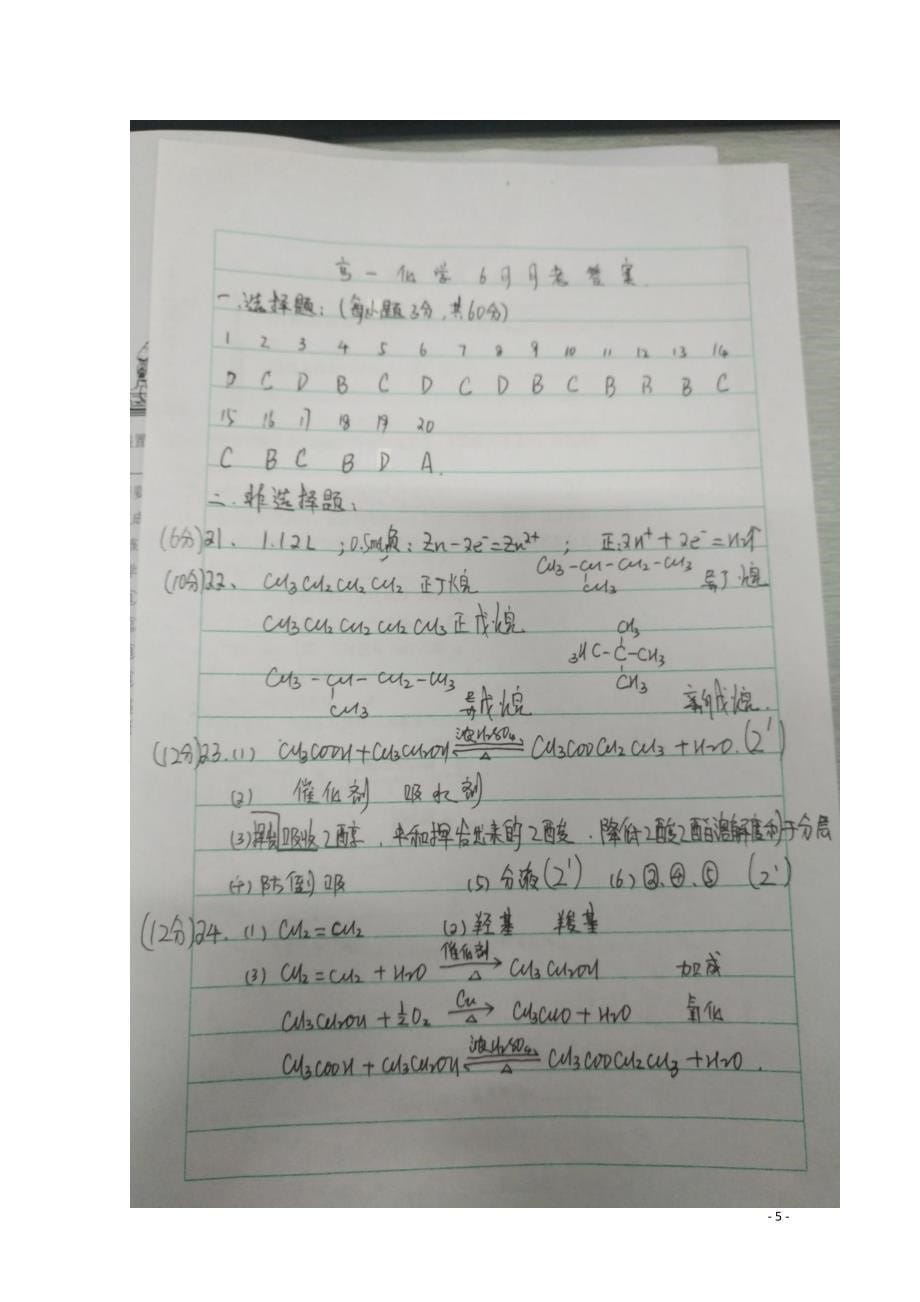 高一化学6月月考答案
一.选择题:(每小题3分,共60分)
1 2 3 4 5 6 7 8 9 10 11 12 13 14
D C D B C D C D B C B B B C
15 16 17 18 19 20
C B C B D A.
二.非选择题:
(6分)21、 1.12L ;0.5mol 负: Zn-2e⁻=Zn²⁺ ; 正:2H⁺+2e⁻=H₂↑
(10分)22、 CH3CH2CH2CH2 正丁烷 CH3-CH-CH2-CH3 异丁烷
CH3
CH3CH2CH2CH2CH3 正戊烷
CH3
3HC-C-CH3
CH3 新戊烷.
CH3-CH-CH2-CH3
CH3 异戊烷
(12分)23.(1) CH3COOH+CH3CH2OH 浓H2SO4 △ CH3COOCH2CH3+H2O.(2')
(2) 催化剂 吸水剂
(3)挥发吸收乙醇,中和挥发出来的乙酸.降低乙酸乙酯溶解度利于分层
(4)防倒吸 (5)分液(2') (6)②④⑤ (2')
(12分)24.(1) CH2=CH2 (2)羟基 羧基
(3) CH2=CH2+H2O 催化剂 △ → CH3CH2OH 加成
CH3CH2OH+½O2 Cu △ → CH3CHO+H2O 氧化
CH3COOH+CH3CH2OH 浓H2SO4 △ CH3COOCH2CH3+H2O.
- 5 -